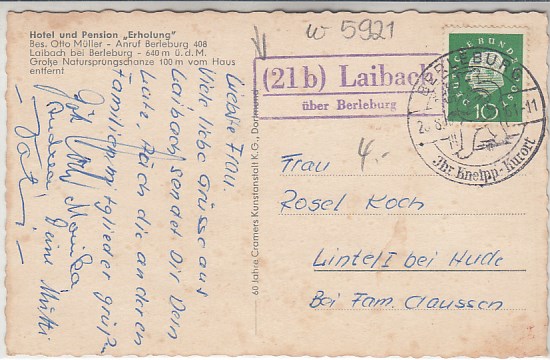 Hotel und Pension „Erholung"
Bes. Otto Müller - Anruf Berleburg 408
Laibach bei Berleburg - 640 m ü. d. M.
Große Natursprungschanze 100 m vom Haus
entfernt
Liebste Frau.
Viele liebe Grüsse aus
Laibach sendet Dir Dein
Lutz, Auch die anderen
Familienmitglieder grüßen
Monika
Deine Mutti
Vati
60 Jahre Cramers Kunstanstalt K.G., Dortmund
W 5921
(21b) Laibach
über Berleburg
BERLEBURG
Ihr Kneipp-Kurort
DEUTSCHE BUNDESPOST
10
4.-
Frau
Rosel Koch
Lintel I bei Hude
Bei Fam. Claussen